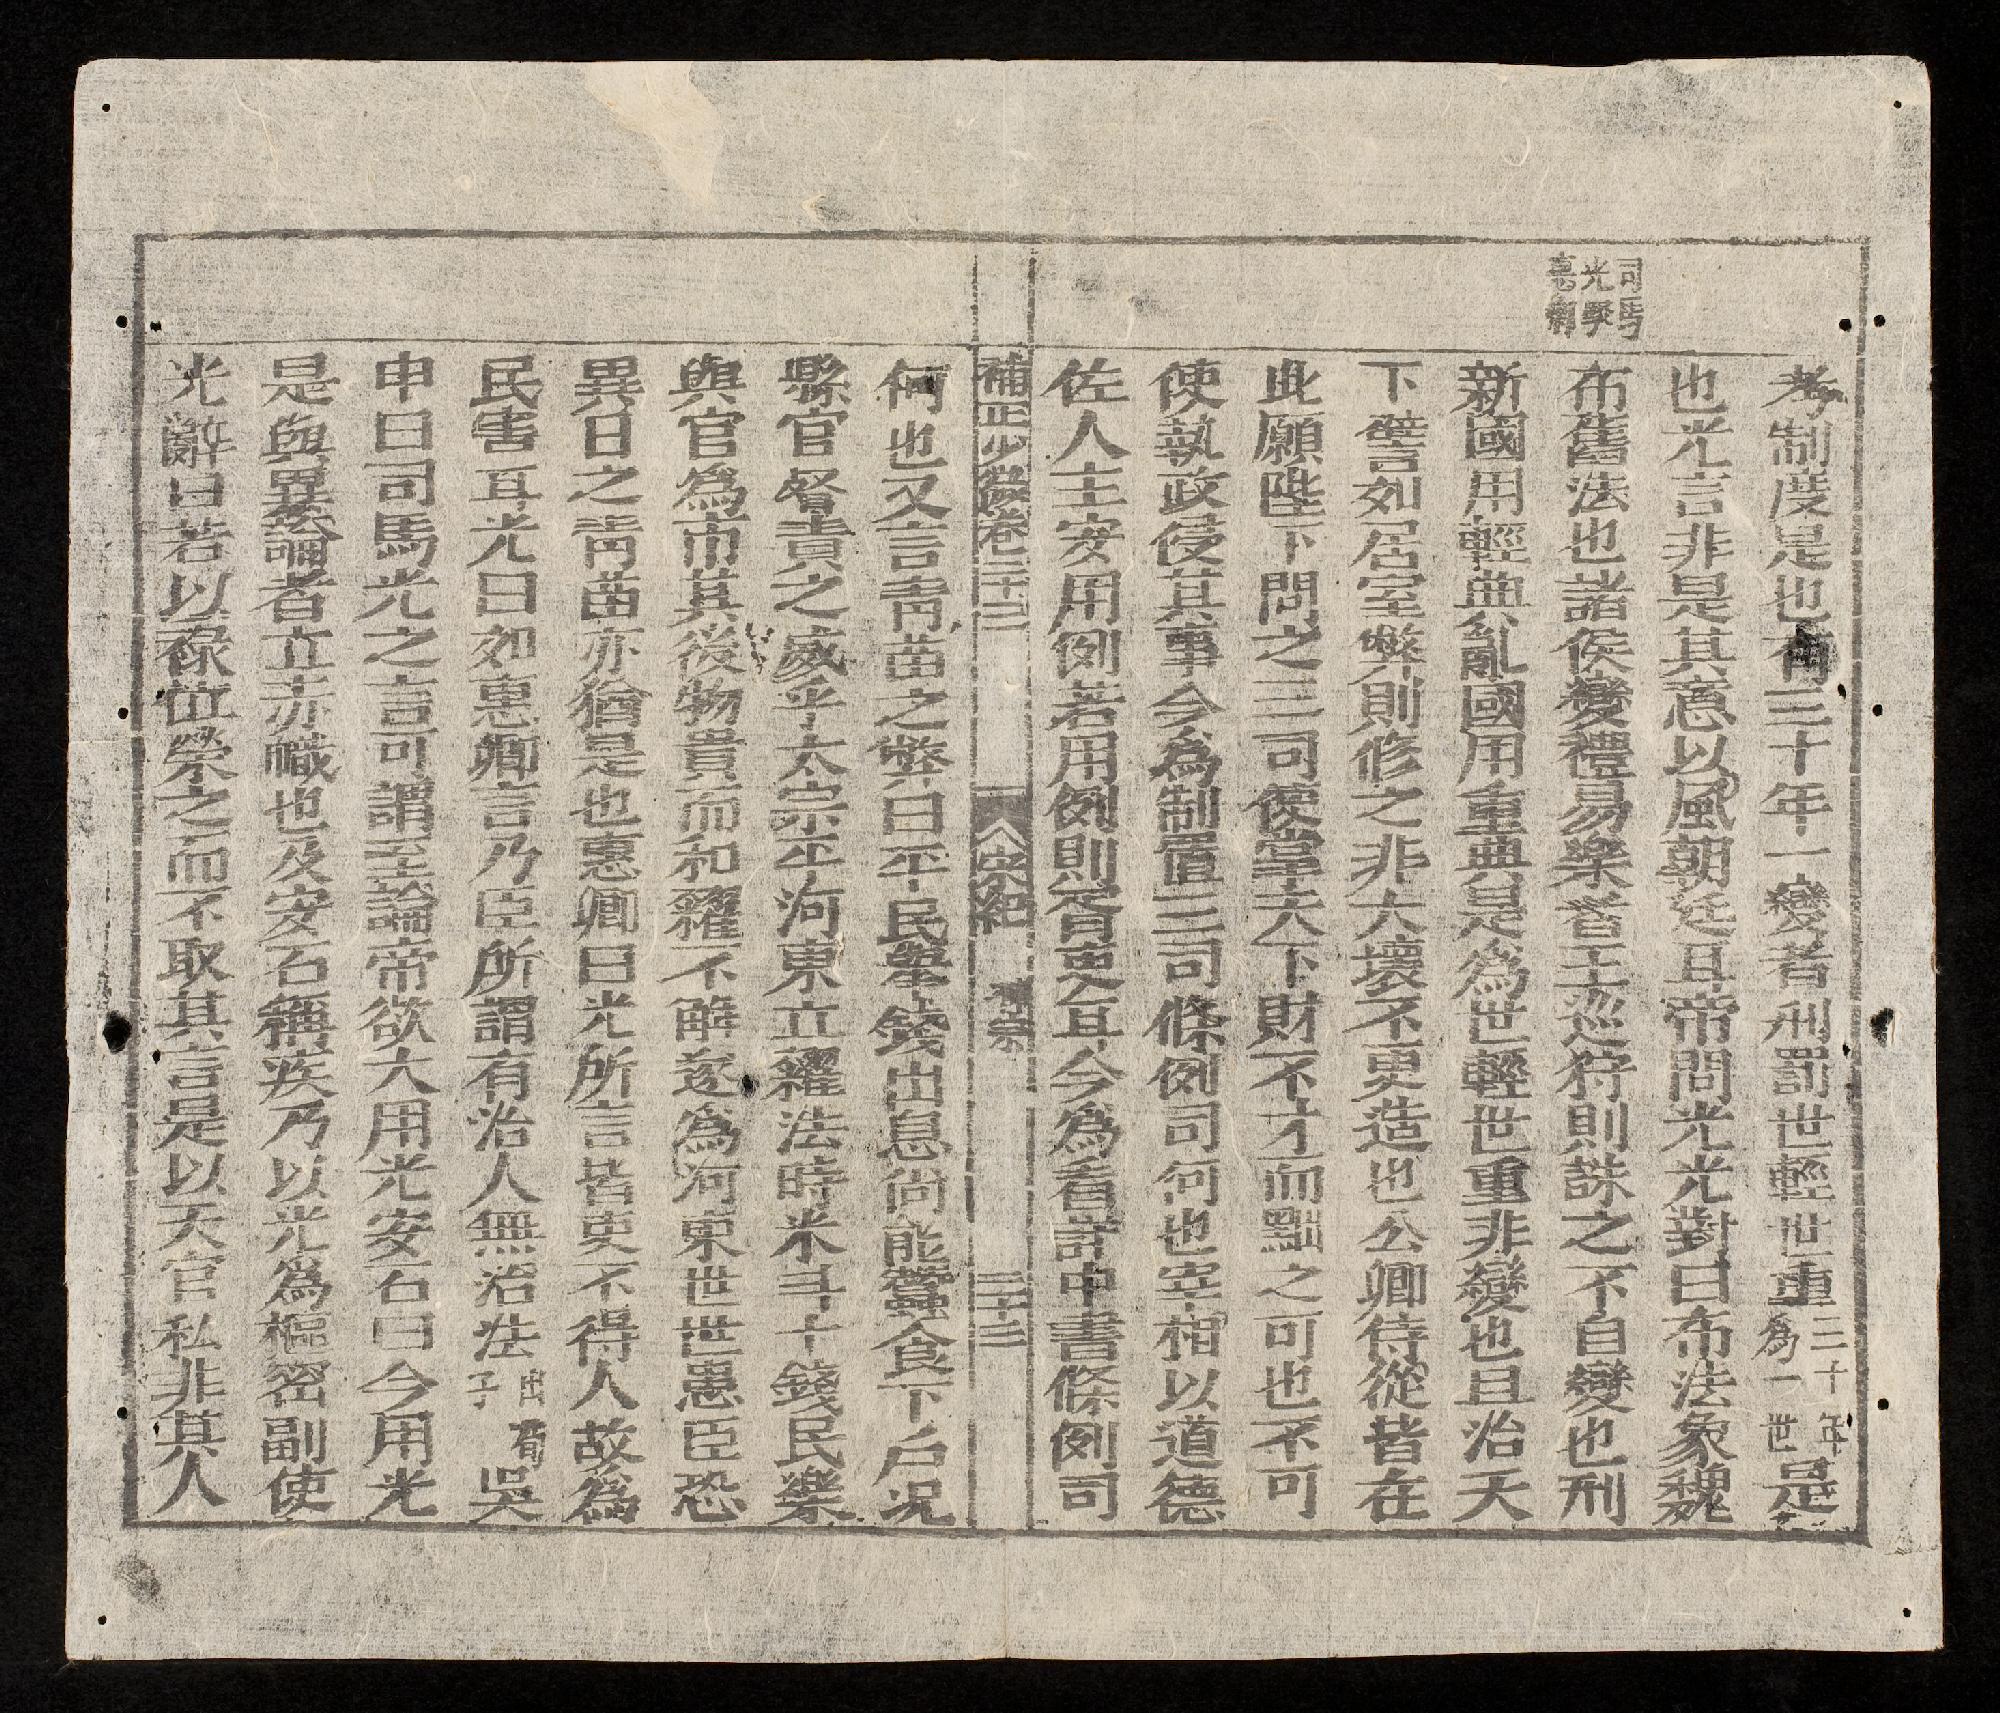 考制度是也有三十年一變者刑罰世輕世重三十年爲一世是
也光言非是其意以風朝廷耳帝問光光對曰布法象魏
司馬光
布舊法也諸侯變禮易樂者王巡狩則誅之不自變也刑
新國用輕典亂國用重典是爲世輕世重非變也且治天
下譬如居室弊則修之非大壞不更造也公卿侍從皆在
此願陛下問之三司使掌天下財不才而黜之可也不可
使執政侵其事今爲制置三司條例司何也宰相以道德
佐人主安用例若用例則胥吏耳今爲看詳中書條例司
補正少微卷三十三 宋紀 神宗 三十三
何也又言靑苗之弊曰平民擧錢出息尙能蠶食下戶况
縣官督責之威乎太宗平河東立糴法時米斗十錢民樂
與官爲市其後物貴而和糴不解遂爲河東世世患臣恐
異日之靑苗亦猶是也惠卿曰光所言皆吏不得人故爲
民害耳光曰如惠卿言乃臣所謂有治人無治法出荀子吳
申曰司馬光之言可謂至論帝欲大用光安石曰今用光
是與異論者立赤幟也及安石稱疾乃以光爲樞密副使
光辭曰若以祿位榮之而不取其言是以天官私非其人